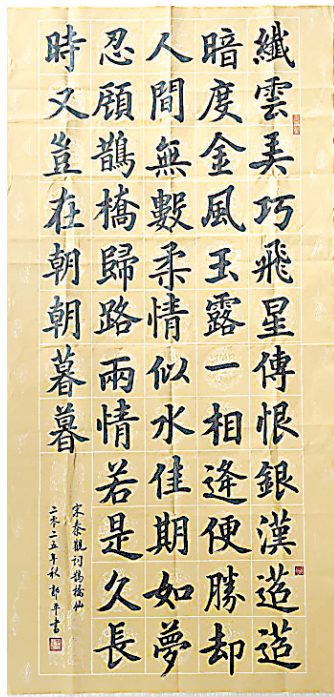 纖雲弄巧飛星傳恨銀漢迢迢
暗度金風玉露一相逢便勝却
人間無數柔情似水佳期如夢
忍顧鵲橋歸路兩情若是久長
時又豈在朝朝暮暮
宋秦觀词鵲橋仙
二零二五年秋郝平書